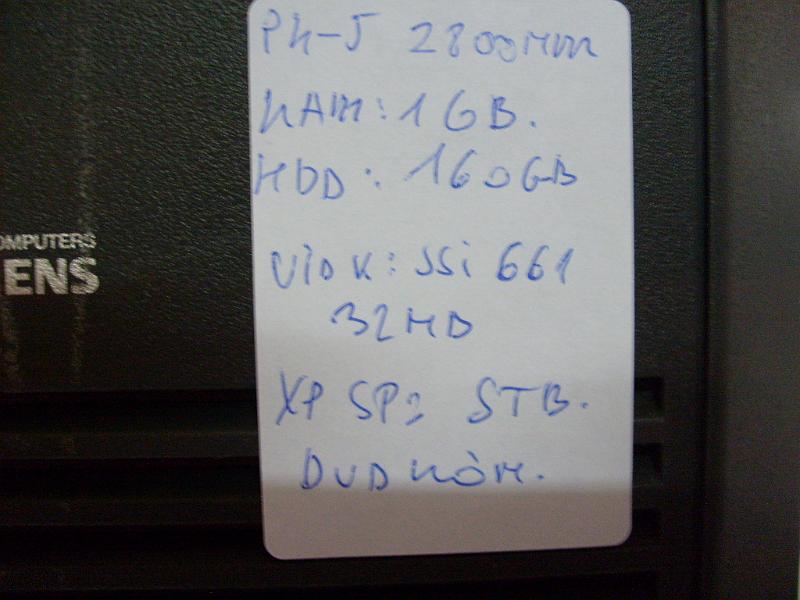 OMPUTERS
ENS
P4-J 2800MHZ
RAM: 1GB.
HDD: 160GB
VID K: SSi 661
32MB
XP SP2 STB.
DVD ROM.